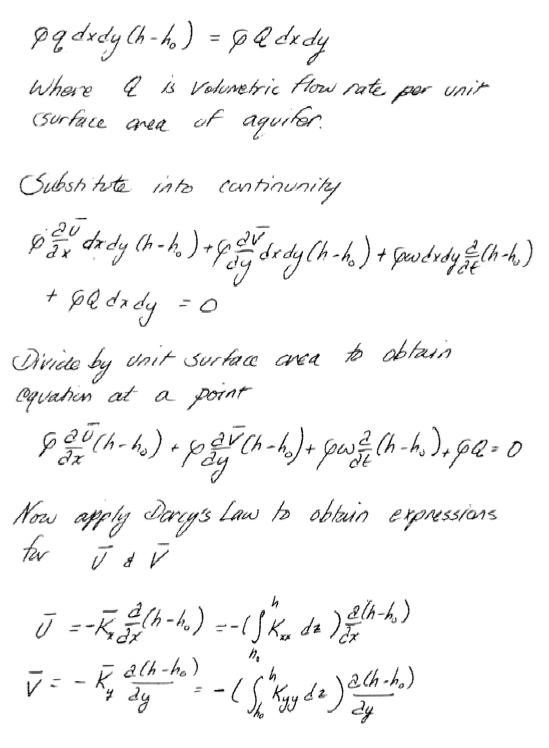 φq dxdy (h-h₀) = φQ dxdy
Where Q is volumetric flow rate per unit
surface area of aquifer.
Substitute into continunity
φ ∂Ū/∂x dxdy (h-h₀) + φ ∂V̄/∂y dxdy (h-h₀) + φω dxdy ∂/∂t (h-h₀)
+ φQ dxdy = 0
Divide by unit surface area to obtain
equation at a point
φ ∂Ū/∂x (h-h₀) + φ ∂V̄/∂y (h-h₀) + φω ∂/∂t (h-h₀) + φQ = 0
Now apply Darcy's Law to obtain expressions
for Ū & V̄
Ū = -K̄ₓ ∂/∂x (h-h₀) = -(∫_{h₀}^{h} Kₓₓ dz) ∂(h-h₀)/∂x
V̄ = -K̄_y ∂(h-h₀)/∂y = -(∫_{h₀}^{h} K_{yy} dz) ∂(h-h₀)/∂y